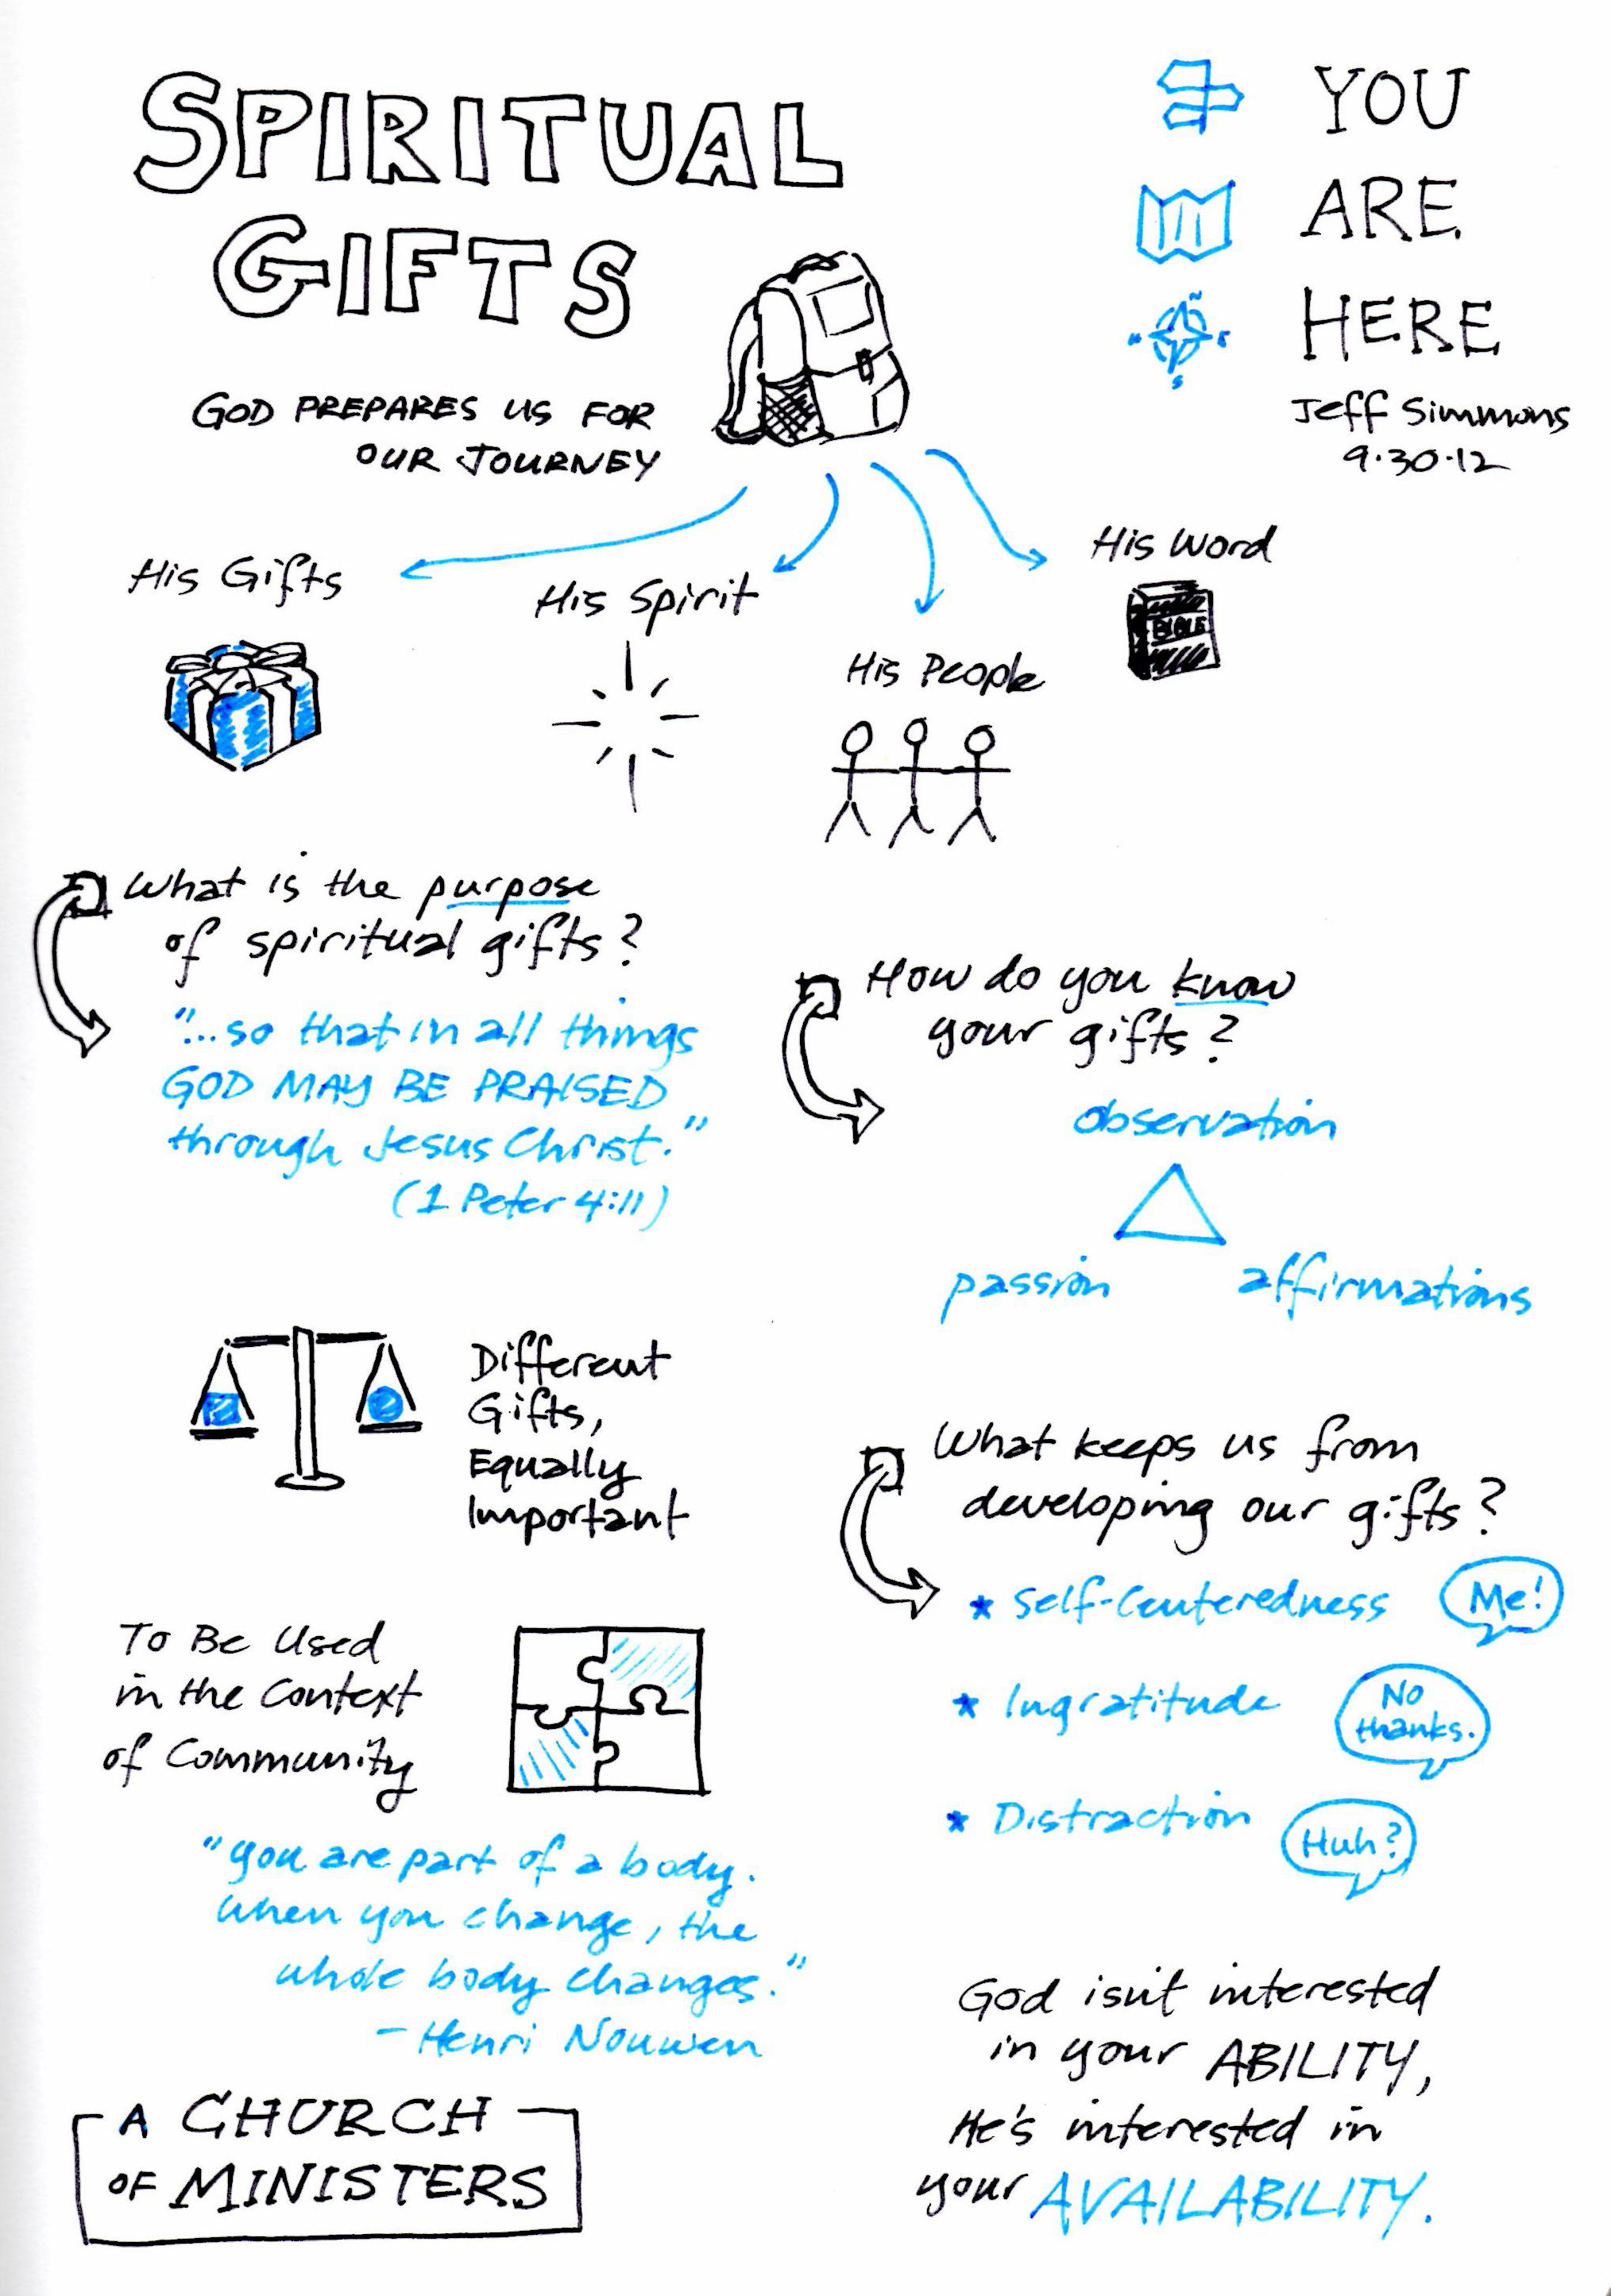 SPIRITUAL
GIFTS
GOD PREPARES US FOR
OUR JOURNEY
YOU
ARE
HERE
N
W
E
S
Jeff Simmons
9.30.12
His Gifts
His Spirit
His People
His Word
BIBLE
What is the purpose
of spiritual gifts?
"...so that in all things
GOD MAY BE PRAISED
through Jesus Christ."
(1 Peter 4:11)
How do you know
your gifts?
observation
passion
affirmations
Different
Gifts,
Equally
Important
What keeps us from
developing our gifts?
* Self-Centeredness
Me!
* Ingratitude
No
thanks.
* Distraction
Huh?
To Be Used
in the Context
of Community
"You are part of a body.
When you change, the
whole body changes."
- Henri Nouwen
A CHURCH
OF MINISTERS
God isn't interested
in your ABILITY,
He's interested in
your AVAILABILITY.